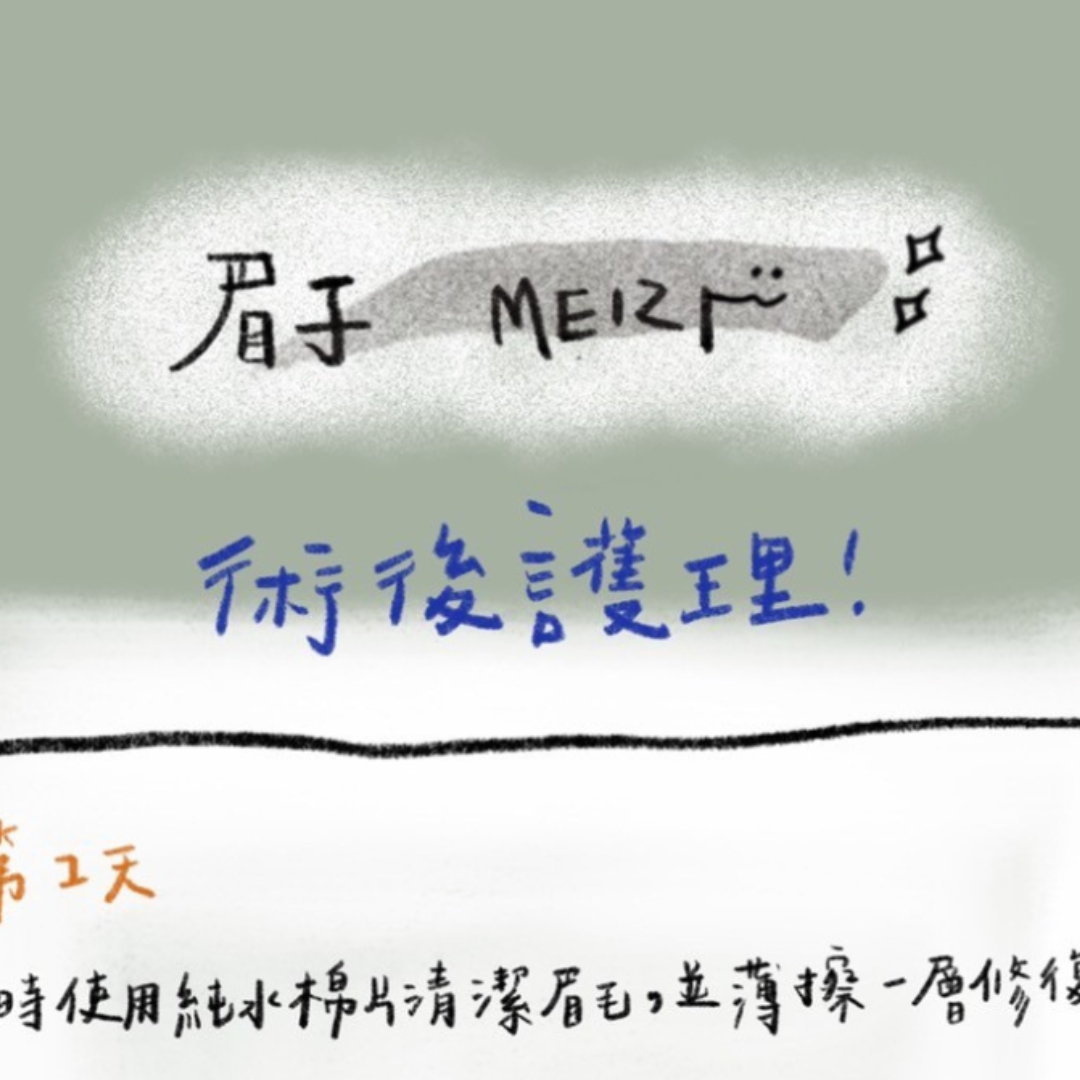 眉子 MEIZI
術後護理!
第1天
時使用純水棉片清潔眉毛,並薄擦一層修復